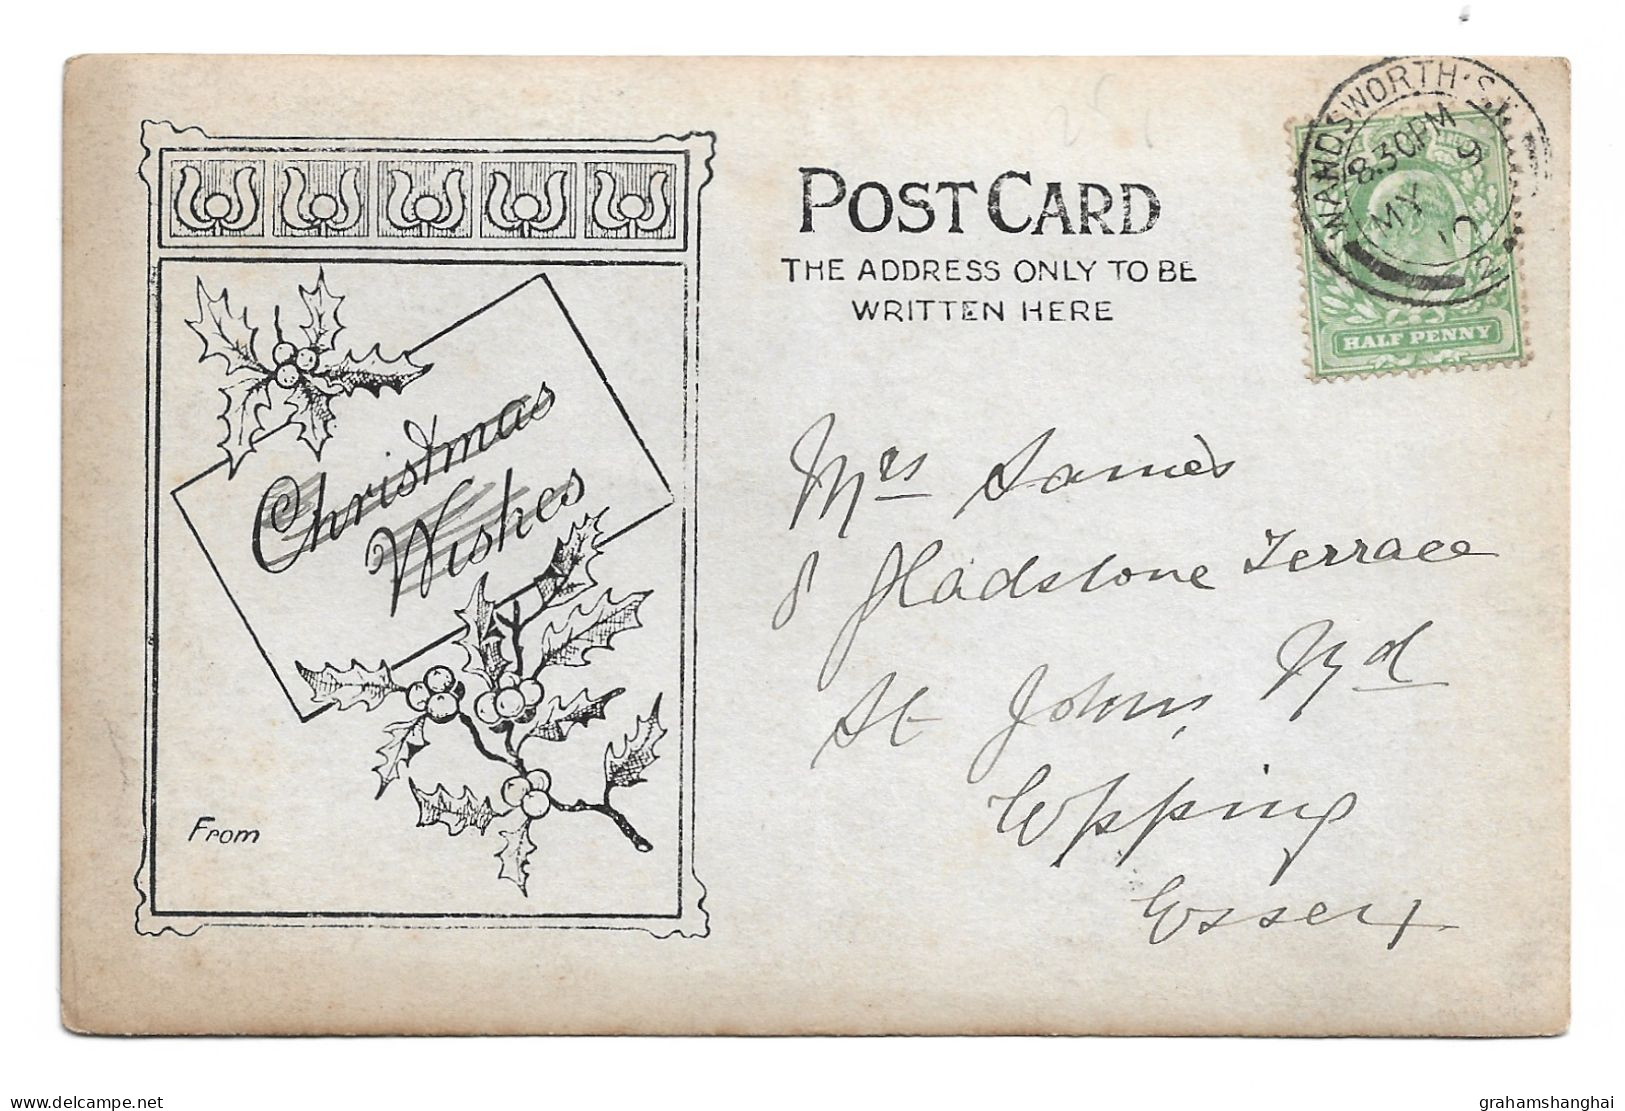 Christmas
Wishes
From
POST CARD
THE ADDRESS ONLY TO BE
WRITTEN HERE
WANDSWORTH S.W.
8.30PM
MY 9
10
HALF PENNY
Mrs James
8 Gladstone Terrace
St Johns Rd
Epping
Essex
delcampe.net
grahamshanghai